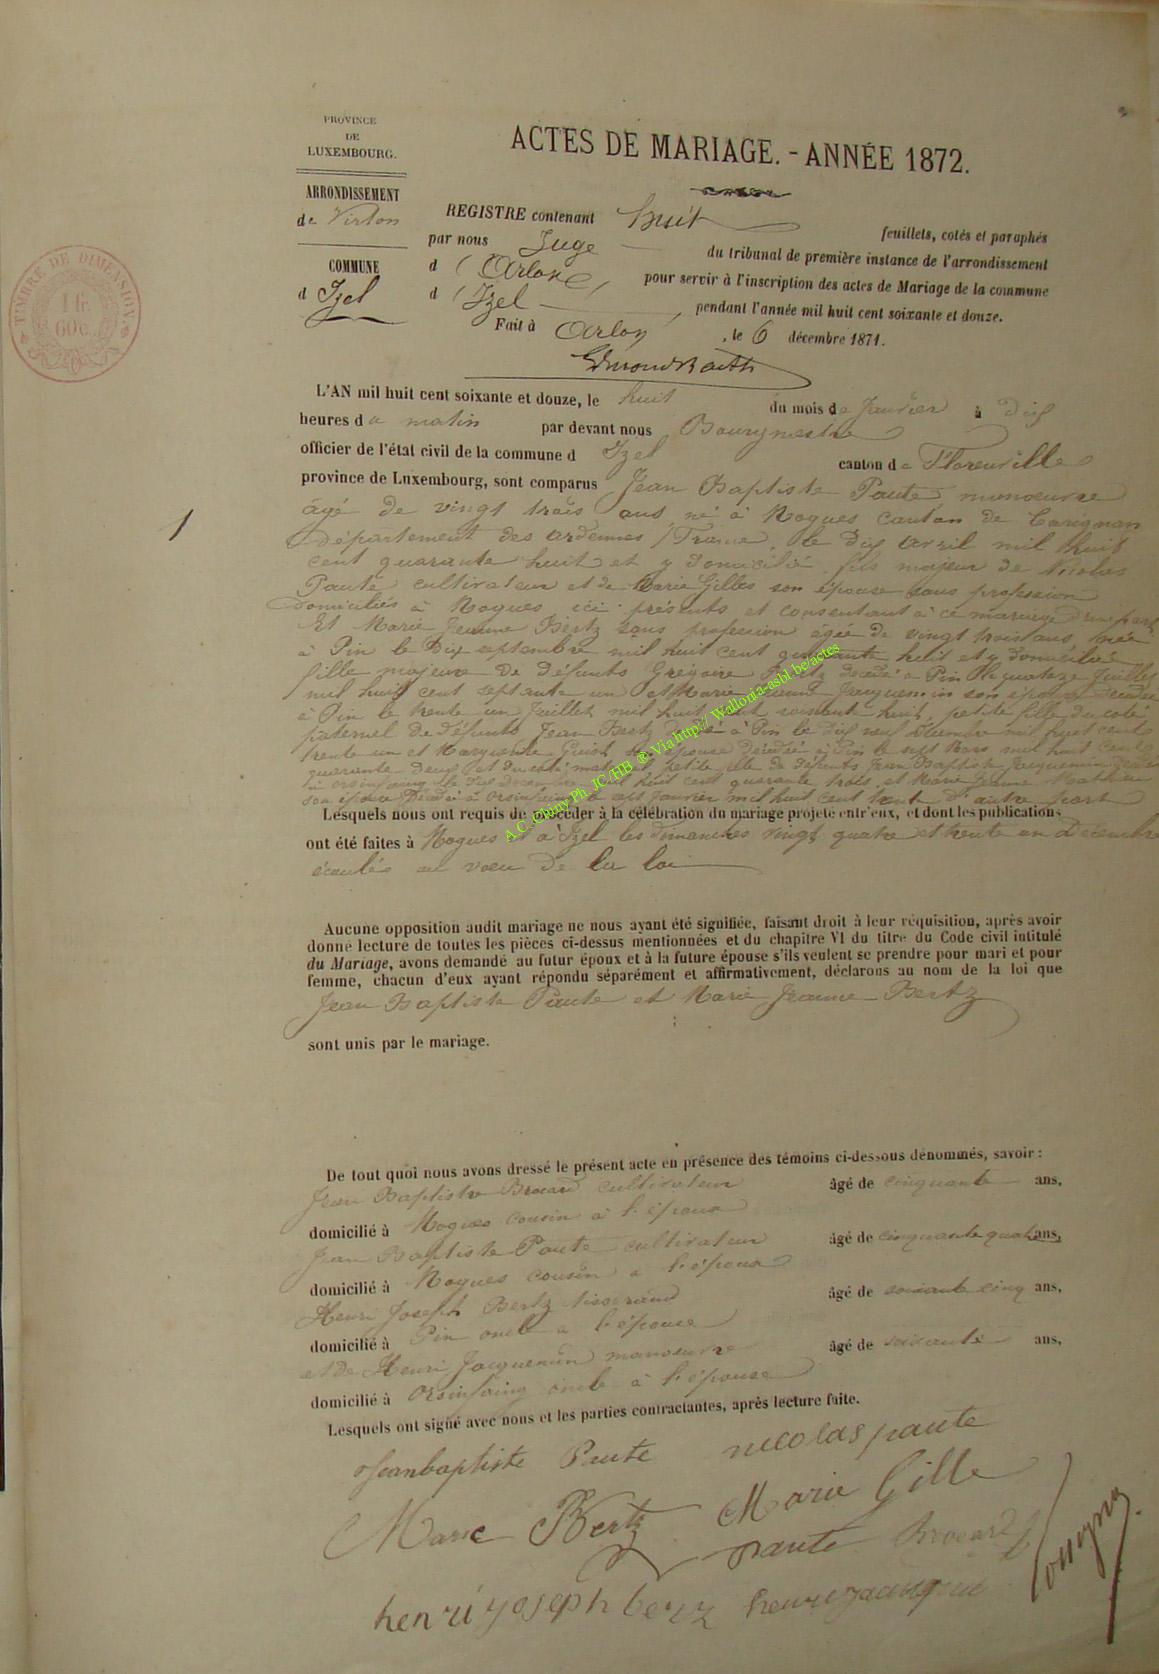 PROVINCE
DE
LUXEMBOURG.
ARRONDISSEMENT
de Virton
COMMUNE
d'Izel
TIMBRE DE DIMENSION
1 fr.
60 c.
ACTES DE MARIAGE. - ANNÉE 1872.
REGISTRE contenant huit feuillets, cotés et paraphés
par nous Juge du tribunal de première instance de l'arrondissement
d'Arlon, pour servir à l'inscription des actes de Mariage de la commune
d'Izel, pendant l'année mil huit cent soixante et douze.
Fait à Arlon, le 6 décembre 1871.
1
L'AN mil huit cent soixante et douze, le huit du mois de Janvier à dix
heures du matin par devant nous Bourgmestre
officier de l'état civil de la commune d'Izel canton de Florenville
province de Luxembourg, sont comparus Jean Baptiste Paute, manoeuvre
âgé de vingt trois ans né à Mogues canton de Carignan
département des ardennes, France, le dix avril mil huit
cent quarante huit et y domicilié fils majeur de Nicolas
Paute cultivateur et de Marie Gilles son épouse sans profession
domiciliés à Mogues ici présents et consentant à ce mariage d'une part
Et Marie Jeanne Bertz sans profession âgée de vingt trois ans née
à Pin le dix septembre mil huit cent quarante huit et y domiciliée
fille majeure de défunts Grégoire Bertz décédé à Pin le quatorze Juillet
mil huit cent septante un et Marie Jeanne Jacquemin son épouse décédée
à Pin le trente un Juillet mil huit cent soixante huit, petite fille du coté
paternel de défunts Jean Bertz décédé à Pin le dix neuf mil huit cent
trente un et Marguerite son épouse décédée à Pin le sept Mars mil huit cent
quarante deux et du coté maternel petite fille de défunts Jean Baptiste Jacquemin décédé
à Orsinfaing le mil huit cent quarante trois et Marie Jeanne Mathieu
son épouse décédée à Orsinfaing le sept Janvier mil huit cent trente d'autre part
Lesquels nous ont requis de procéder à la célébration du mariage projeté entr'eux, et dont les publications
ont été faites à Mogues et à Izel les dimanches vingt quatre et trente un décembre
écoulés au voeu de la loi
Aucune opposition audit mariage ne nous ayant été signifiée, faisant droit à leur réquisition, après avoir
donné lecture de toutes les pièces ci-dessus mentionnées et du chapitre VI du titre du Code civil intitulé
du Mariage, avons demandé au futur époux et à la future épouse s'ils veulent se prendre pour mari et pour
femme, chacun d'eux ayant répondu séparément et affirmativement, déclarons au nom de la loi que
Jean Baptiste Paute et Marie Jeanne Bertz
sont unis par le mariage.
De tout quoi nous avons dressé le présent acte en présence des témoins ci-dessous dénommés, savoir :
Jean Baptiste Brocard cultivateur âgé de cinquante ans,
domicilié à Mogues cousin à l'époux
Jean Baptiste Paute cultivateur âgé de cinquante quatre ans,
domicilié à Mogues cousin à l'époux
Henri Joseph Bertz tisserand âgé de soixante cinq ans,
domicilié à Pin oncle à l'épouse
et de Henri Jacquemin manoeuvre âgé de soixante ans,
domicilié à Orsinfaing oncle à l'épouse
Lesquels ont signé avec nous et les parties contractantes, après lecture faite.
Jeanbaptiste Paute nicolas paute
Marie Bertz Marie Gille
paute Brocard
henri joseph bertz henri jacquemin
A.C. Chiny Ph. JC/HB ® Via http:// Wallonia-asbl.be/actes